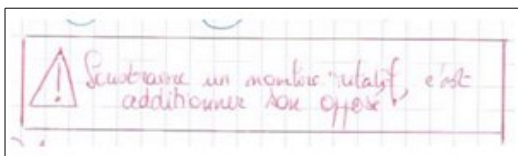 Soustraire un nombre relatif, c'est
additionner son opposé